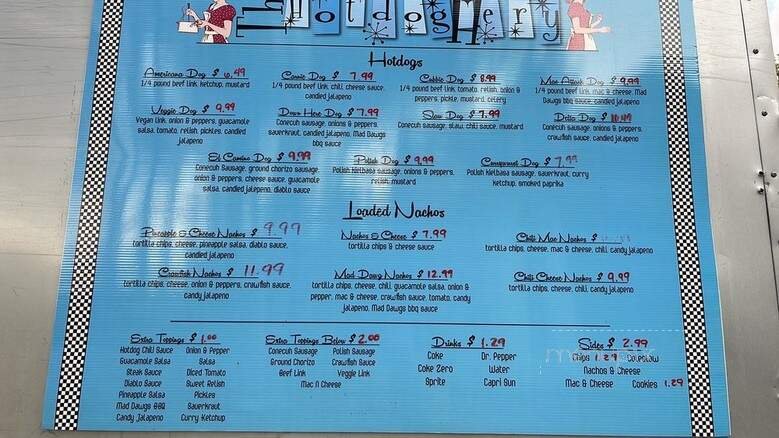 The Hotdog Hery
Hotdogs
Americana Dog $ 6.49
1/4 pound beef link, ketchup, mustard
Connie Dog $ 7.99
1/4 pound beef link, chili, cheese sauce,
candied jalapeno
Cobbie Dog $ 8.99
1/4 pound beef link, tomato, relish, onion &
peppers, pickle, mustard, celery
Mac Attack Dog $ 9.99
1/4 pound beef link, mac & cheese, Mad
Dawgs bbq sauce, candied jalapeno
Veggie Dog $ 9.99
Vegan link, onion & peppers, guacamole
salsa, tomato, relish, pickles, candied
jalapeno
Down Home Dog $ 7.99
Conecuh sausage, onions & peppers,
sauerkraut, candied jalapeno, Mad Dawgs
bbq sauce
Slaw Dog $ 7.99
Conecuh sausage, slaw, chili sauce, mustard
Delta Dog $ 10.49
Conecuh sausage, onions & peppers,
crawfish sauce, candied jalapeno
El Camino Dog $ 9.99
Conecuh sausage, ground chorizo sausage,
onion & peppers, cheese sauce, guacamole
salsa, candied jalepeno, diablo sauce
Polish Dog $ 9.99
Polish kielbasa sausage, onions & peppers,
relish, mustard
Dog $ 7.99
Polish kielbasa sausage, sauerkraut, curry
ketchup, smoked paprika
Loaded Nachos
Pineapple & Cheese Nachos $ 9.99
tortilla chips, cheese, pineapple salsa, diablo sauce,
candied jalapeno
Nachos & Cheese $ 7.99
tortilla chips & cheese sauce
Chili Mac Nachos $
tortilla chips, cheese, mac & cheese, chili, candy jalapeno
Crawfish Nachos $ 11.99
tortilla chips, cheese, onion & peppers, crawfish sauce,
candy jalapeno
Mad Dawg Nachos $ 12.99
tortilla chips, cheese, chili, guacamole salsa, onion &
pepper, mac & cheese, crawfish sauce, tomato, candy
jalapeno, Mad Dawgs bbq sauce
Chili Cheese Nachos $ 9.99
tortilla chips, cheese, chili, candied jalapeno
Extra Toppings $ 1.00
Hotdog Chili Sauce Onion & Pepper
Guacamole Salsa Salsa
Steak Sauce Diced Tomato
Diablo Sauce Sweet Relish
Pineapple Salsa Pickles
Mad Dawgs BBQ Sauerkraut
Candy Jalapeno Curry Ketchup
Extra Toppings Below $ 2.00
Conecuh Sausage Polish Sausage
Ground Chorizo Crawfish Sauce
Beef Link Veggie Link
Mac N Cheese
Drinks $ 1.29
Coke Dr. Pepper
Coke Zero Water
Sprite Capri Sun
Sides $ 2.99
Chips 1.29 Coleslaw
Nachos & Cheese
Mac & Cheese Cookies 1.29